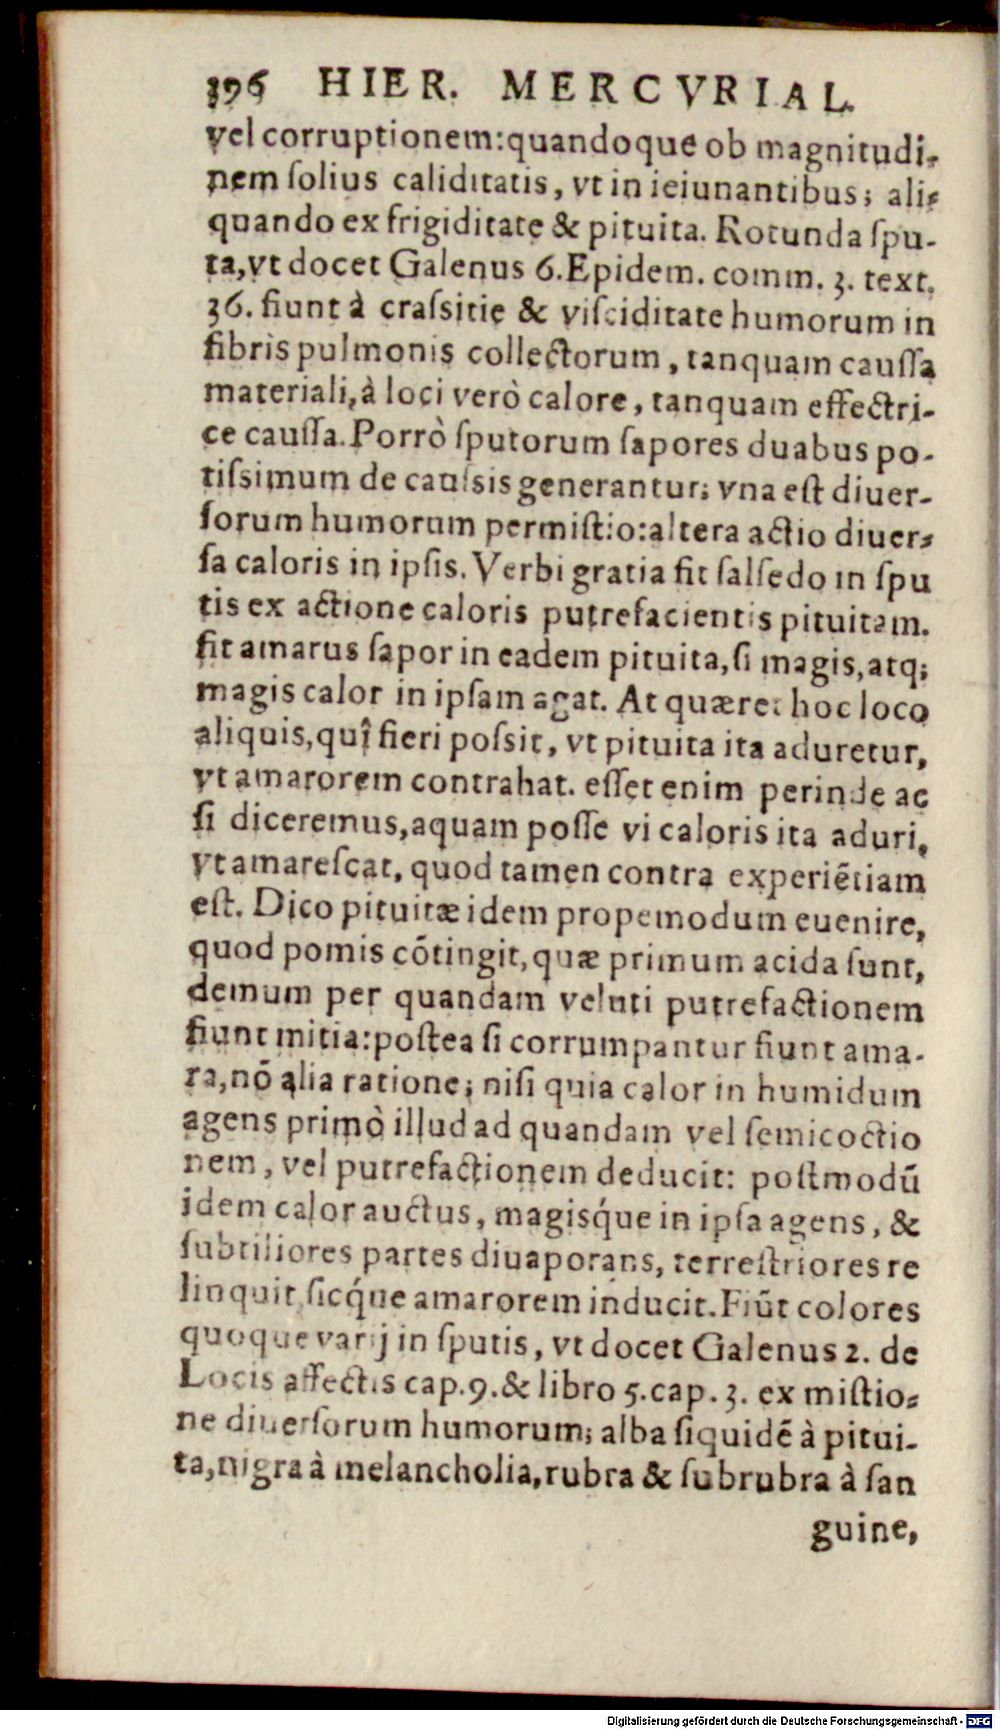 396 HIER. MERCVRIAL.
vel corruptionem:quandoque ob magnitudi-
nem ſolius caliditatis, vt in ieiunantibus; ali-
quando ex frigiditate & pituita. Rotunda ſpu-
ta,vt docet Galenus 6.Epidem. comm. 3. text.
36. fiunt à craſsitie & viſciditate humorum in
fibris pulmonis collectorum, tanquam cauſſa
materiali,à loci verò calore, tanquam effectri-
ce cauſſa.Porrò ſputorum ſapores duabus po-
tiſsimum de cauſsis generantur; vna eſt diuer-
ſorum humorum permiſtio:altera actio diuer-
ſa caloris in ipſis. Verbi gratia fit ſalſedo in ſpu
tis ex actione caloris putrefacientis pituitam.
fit amarus ſapor in eadem pituita,ſi magis,atq;
magis calor in ipſam agat. At quæret hoc loco
aliquis,quî fieri poſsit, vt pituita ita aduretur,
vt amarorem contrahat. eſſet enim perinde ac
ſi diceremus,aquam poſſe vi caloris ita aduri,
vt amareſcat, quod tamen contra experiẽtiam
eſt. Dico pituitæ idem propemodum euenire,
quod pomis cõtingit,quæ primum acida ſunt,
demum per quandam veluti putrefactionem
fiunt mitia:poſtea ſi corrumpantur fiunt ama-
ra,nõ alia ratione; niſi quia calor in humidum
agens primò illud ad quandam vel ſemicoctio
nem, vel putrefactionem deducit: poſtmodũ
idem calor auctus, magisq́ue in ipſa agens, &
ſubtiliores partes diuaporans, terreſtriores re
linquit ſicq́ue amarorem inducit.Fiũt colores
quoque varij in ſputis, vt docet Galenus 2. de
Locis affectis cap.9.& libro 5.cap.3. ex miſtio-
ne diuerſorum humorum; alba ſiquidẽ à pitui-
ta,nigra à melancholia,rubra & ſubrubra à ſan
guine,
Digitalisierung gefördert durch die Deutsche Forschungsgemeinschaft - DFG